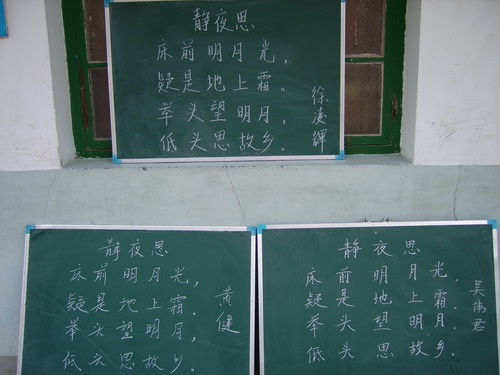 静夜思
床前明月光，
疑是地上霜。
举头望明月，
低头思故乡。
徐
静夜思
床前明月光，
疑是地上霜.
举头望明月，
低头思故乡.
黄健
静夜思
床前明月光.
疑是地上霜.
举头望明月.
低头思故乡.
吴伟君